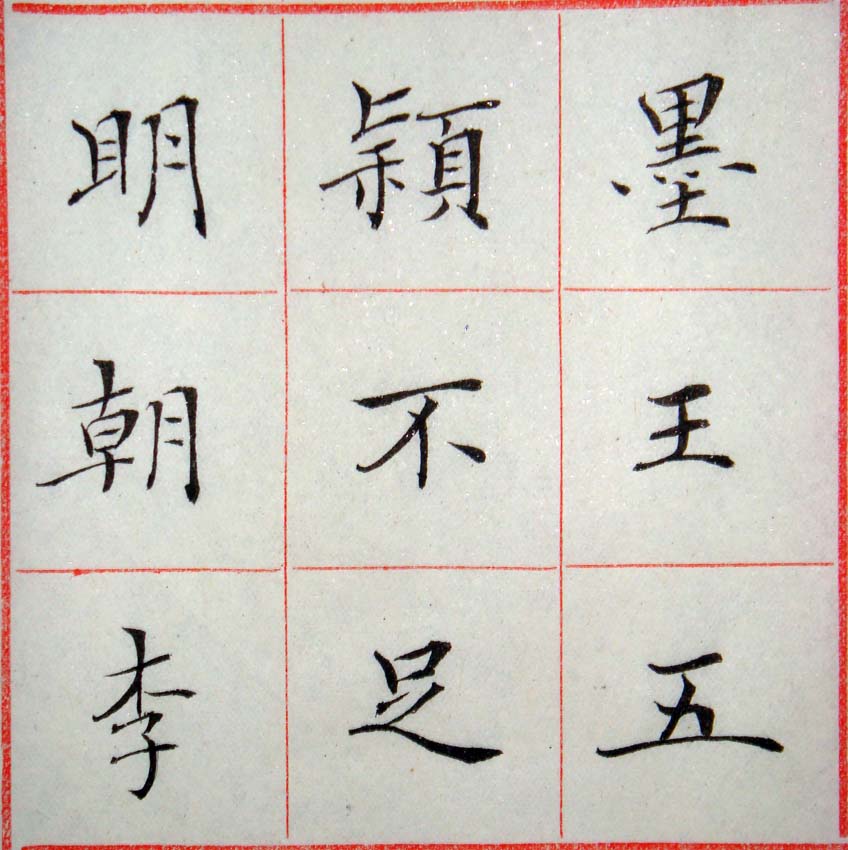 墨王五
颖不足
明朝李